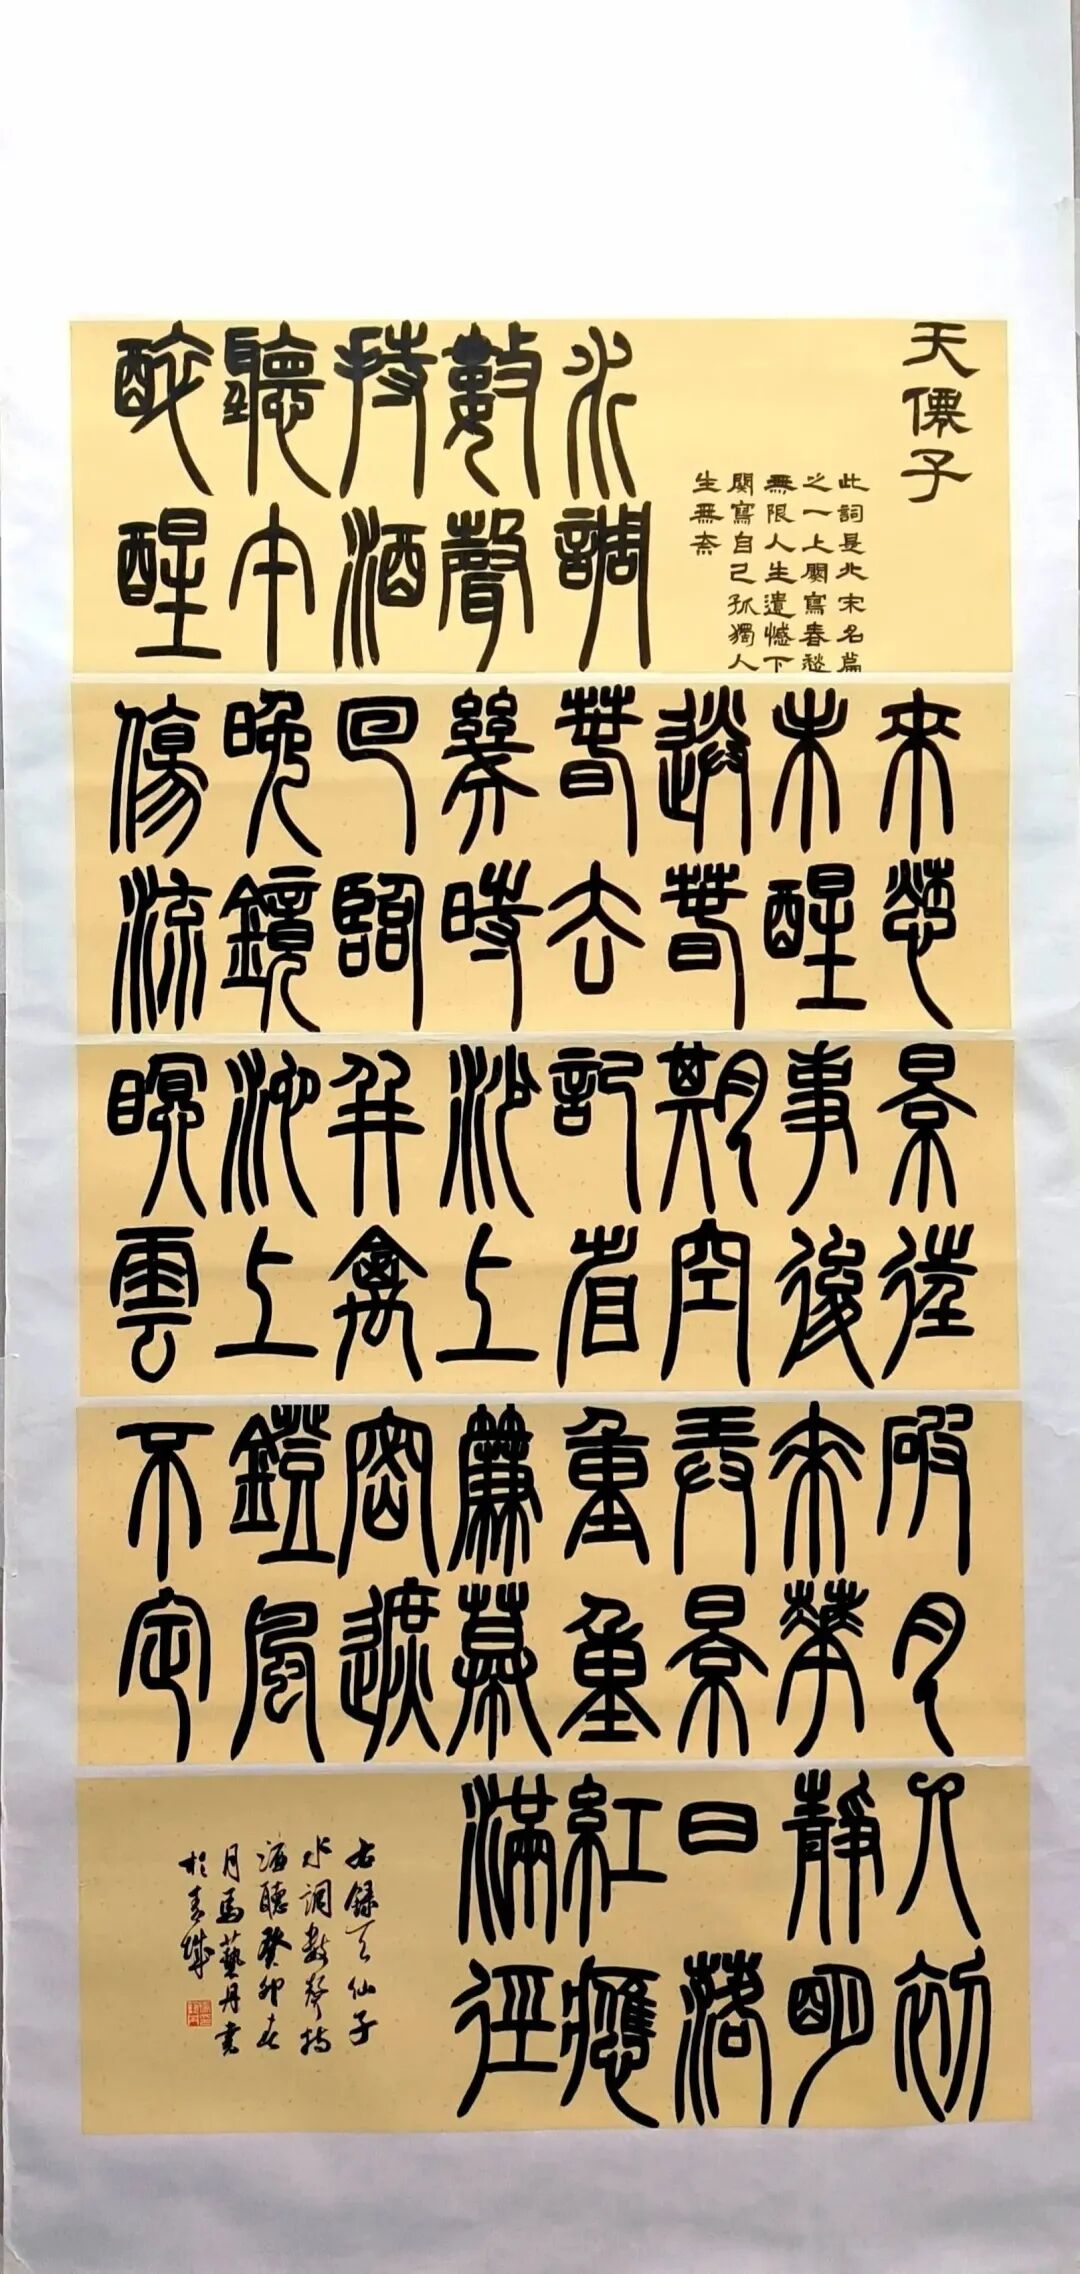 天僊子
此詞是北宋名篇
之一上闋寫春愁
無限人生遺憾下
闋寫自己孤獨人
生無奈
水調
數聲
持酒
聽午
醉醒
來愁
未醒
送春
春去
幾時
回臨
晚鏡
傷流
景往
事後
期空
記省
沙上
并禽
池上
瞑雲
破月
來華
弄景
重重
簾幕
密遮
鐙風
不定
人初
靜明
日落
紅應
滿徑
右錄天仙子
水調數聲持
酒聽癸卯春
月馬藝丹書
於青城